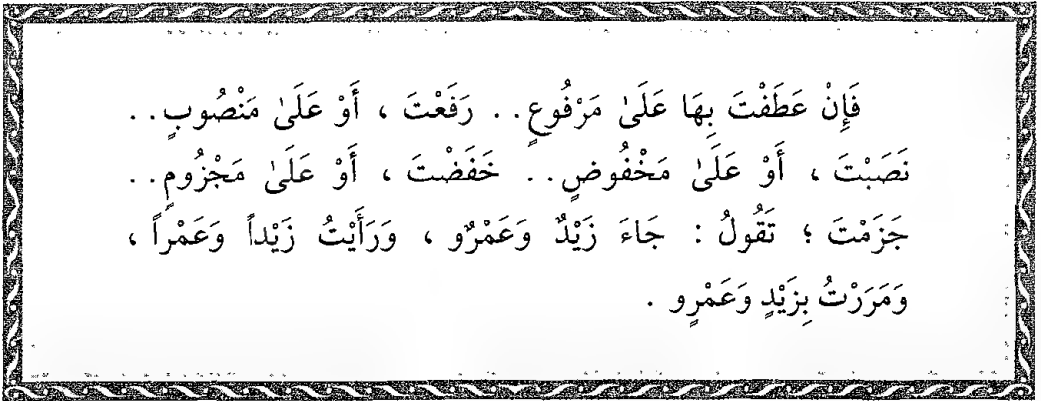 فَإِنْ عَطَفْتَ بِهَا عَلَىٰ مَرْفُوعٍ . . رَفَعْتَ ، أَوْ عَلَىٰ مَنْصُوبٍ . .
نَصَبْتَ ، أَوْ عَلَىٰ مَخْفُوضٍ . . خَفَضْتَ ، أَوْ عَلَىٰ مَجْزُومٍ . .
جَزَمْتَ ؛ تَقُولُ : جَاءَ زَيْدٌ وَعَمْرٌو ، وَرَأَيْتُ زَيْداً وَعَمْراً ،
وَمَرَرْتُ بِزَيْدٍ وَعَمْرٍو .